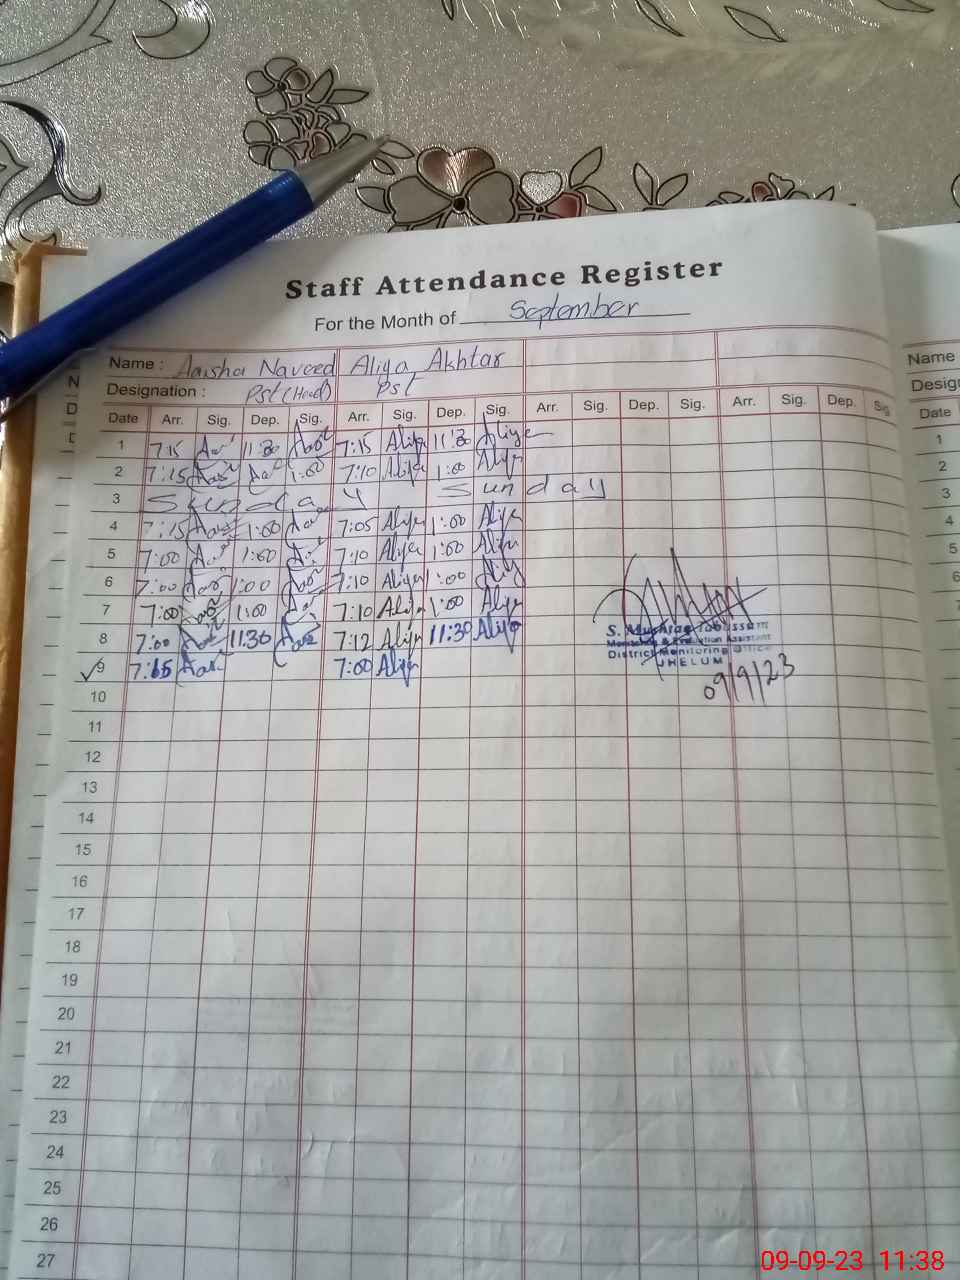 Staff Attendance Register
For the Month of September
Name : Aaisha Naveed Aliya Akhtar
Name
Designation : Pst (Head) Pst
Desig
Date Arr. Sig. Dep. Sig. Arr. Sig. Dep. Sig. Arr. Sig. Dep. Sig. Arr. Sig. Dep. Sig
Date
1 7:15 11:30 7:15 Aliya 11:30 Aliya
1
2 7:15 1:00 7:10 Aliya 1:00 Aliya
2
3 Sunday Sunday
3
4 7:15 1:00 7:05 Aliya 1:00 Aliya
4
5 7:00 1:00 7:10 Aliya 1:00 Aliya
5
6 7:00 1:00 7:10 Aliya 1:00 Aliya
6
7 7:00 1:00 7:10 Aliya 1:00 Aliya
7
8 7:00 11:30 7:12 Aliya 11:30 Aliya
8
S. Mushtaq Tabussam
Monitoring & Evaluation Assistant
District Monitoring Office
JHELUM
09/9/23
9 7:15 7:00 Aliya
9
10
10
11
11
12
12
13
13
14
14
15
15
16
16
17
17
18
18
19
20
21
22
23
24
25
26
27
09-09-23 11:38